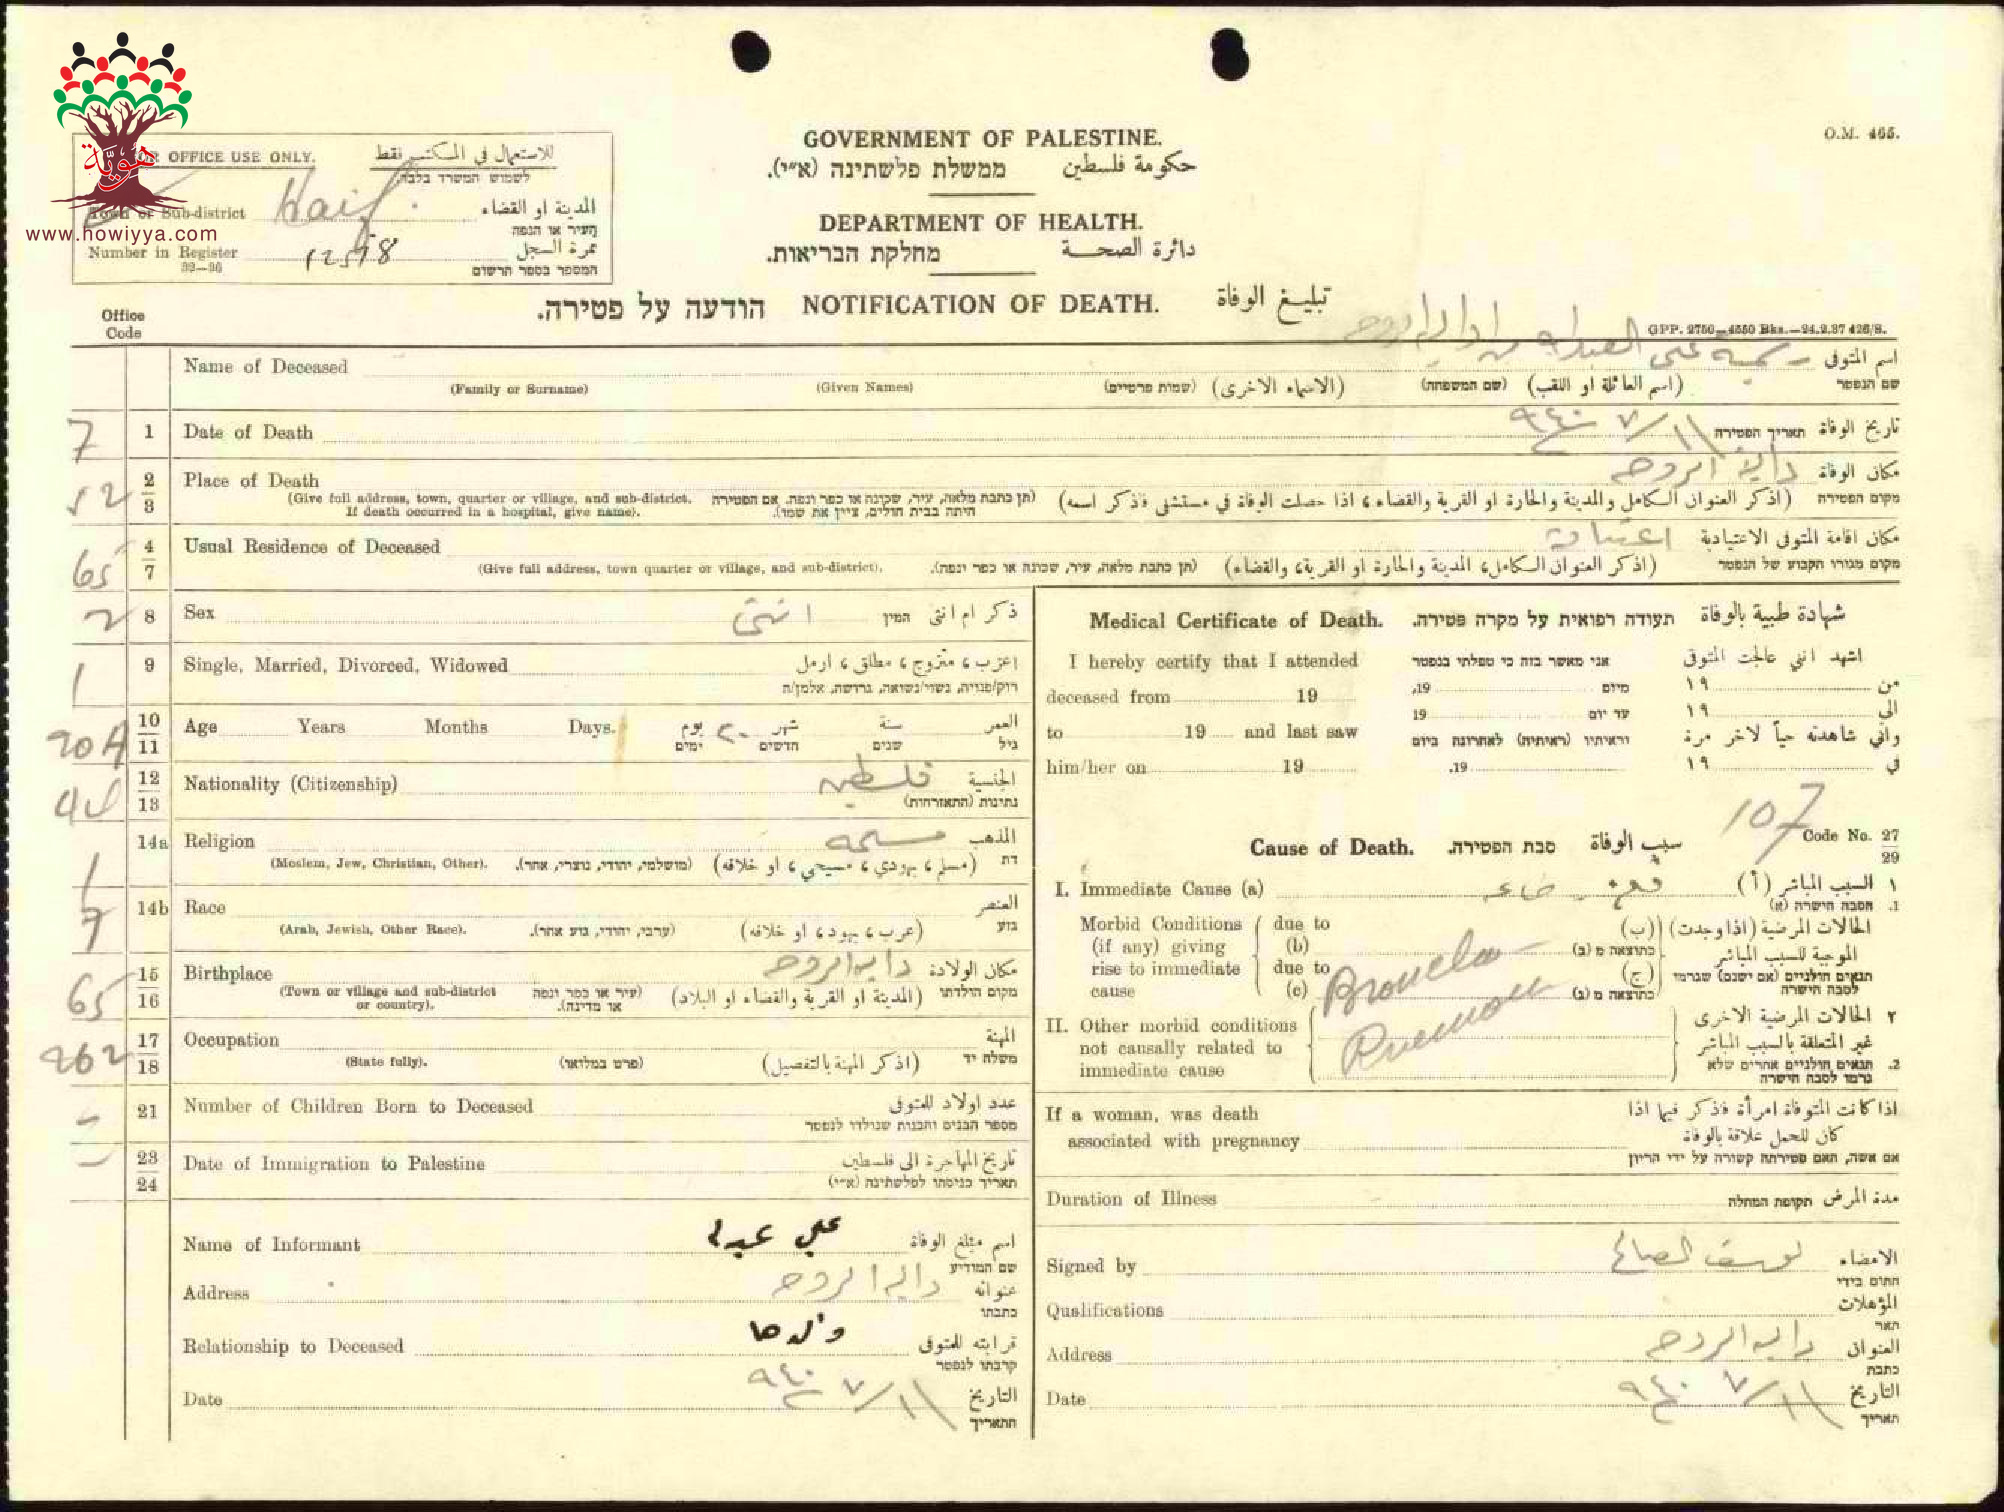 O.M. 465.
GOVERNMENT OF PALESTINE.
ממשלת פלשתינה (א״י). حكومة فلسطين
DEPARTMENT OF HEALTH.
מחלקת הבריאות. دائرة الصحة
هويّة
www.howiyya.com
FOR OFFICE USE ONLY. للاستعمال في المكتب فقط
לשמוש המשרד בלבד.
Town or Sub-district Haif. المدينة او القضاء
העיר או הנפה
Number in Register نمرة السجل
32—36 המספר בספר הרשום
הודעה על פטירה. NOTIFICATION OF DEATH. تبليغ الوفاة
GPP. 2750—4550 Bks.—24.2.37 426/S.
Office
Code
Name of Deceased اسم المتوفى
(Family or Surname) (Given Names) (שמות פרטיים) (الاسماء الاخرى) (שם המשפחה) (اسم العائلة او اللقب) שם הנפטר
7 1 Date of Death ١١/٧/٩٤٠ תאריך הפטירה تاريخ الوفاة
52 2 3 Place of Death دالية الروحه مكان الوفاة
(Give full address, town, quarter or village, and sub-district. If death occurred in a hospital, give name). (תן כתבת מלאה, עיר, שכונה או כפר ונפה. אם הפטירה היתה בבית חולים, ציין את שמו). (اذكر العنوان الكامل والمدينة والحارة او القرية والقضاء، اذا حصلت الوفاة في مستشفى فذكر اسمه) מקום הפטירה
65 4 7 Usual Residence of Deceased مكان اقامة المتوفى الاعتيادية
(Give full address, town quarter or village, and sub-district). (תן כתבת מלאה, עיר, שכונה או כפר ונפה). (اذكر العنوان الكامل، المدينة والحارة او القرية، والقضاء) מקום מגוריו הקבוע של הנפטר
2 8 Sex انثى המין ذكر ام انثى
1 9 Single, Married, Divorced, Widowed اعزب، متزوج، مطلق، ارمل
רוק/פנויה, נשוי/נשואה, גרושה, אלמן/ה
10 11 Age Years Months Days. يوم ٢٠ شهر سنة العمر
ימים חדשים שנים גיל
12 13 Nationality (Citizenship) الجنسية
נתינות (התאזרחות)
14a Religion المذهب
(Moslem, Jew, Christian, Other). (מושלמי, יהודי, נוצרי, אחר). (مسلم، يهودي، مسيحي، او خلافه) דת
7 14b Race العنصر
(Arab, Jewish, Other Race). (ערבי, יהודי, גזע אחר). (عرب، يهود، او خلافه) גזע
65 15 16 Birthplace دالية الروحه مكان الولادة
(Town or village and sub-district or country). (עיר או כפר ונפה או מדינה). (المدينة او القرية والقضاء او البلاد) מקום הולדתו
262 17 18 Occupation المهنة
(State fully). (פרט במלואו) (اذكر المهنة بالتفصيل) משלח יד
21 Number of Children Born to Deceased عدد اولاد للمتوفى
מספר הבנים והבנות שנולדו לנפטר
23 24 Date of Immigration to Palestine تاريخ المهاجرة الى فلسطين
תאריך כניסתו לפלשתינה (א״י)
Name of Informant اسم مبلغ الوفاة
שם המודיע
Address دالية الروحه عنوانه
כתבתו
Relationship to Deceased والدها قرابته للمتوفى
קרבתו לנפטר
Date ١١/٧/٩٤٠ التاريخ
התאריך
Medical Certificate of Death. תעודה רפואית על מקרה פטירה. شهادة طبية بالوفاة
I hereby certify that I attended אני מאשר בזה כי טפלתי בנפטר اشهد انني عالجت المتوفى
deceased from 19 מיום 19, من ١٩
to 19 and last saw עד יום 19 الى ١٩
וראיתיו (ראיתיה) לאחרונה ביום واني شاهدته حياً لاخر مرة
him/her on 19 19. في ١٩
107
Code No. 27 29
Cause of Death. סבת הפטירה. سبب الوفاة
I. Immediate Cause (a) السبب المباشر (أ) ١
הסבה הישרה (א) 1.
Morbid Conditions (if any) giving rise to immediate cause
due to (b) כתוצאה מ (ב) (ب)
due to (c) כתוצאה מ (ג) (ج)
الحالات المرضية (اذا وجدت) الموجبة للسبب المباشر
תנאים חולניים (אם ישנם) שגרמו לסבה הישרה
II. Other morbid conditions not causally related to immediate cause
٢ الحالات المرضية الاخرى غير المتعلقة بالسبب المباشر
2. תנאים חולניים אחרים שלא גרמו לסבה הישרה
If a woman, was death associated with pregnancy
اذا كانت المتوفاة امرأة فذكر فيما اذا كان للحمل علاقة بالوفاة
אם אשה, האם פטירתה קשורה על ידי הריון
Duration of Illness תקופת המחלה مدة المرض
Signed by الامضاء
חתום בידי
Qualifications المؤهلات
תאר
Address دالية الروحه العنوان
כתבת
Date ١١/٧/٩٤٠ التاريخ
תאריך